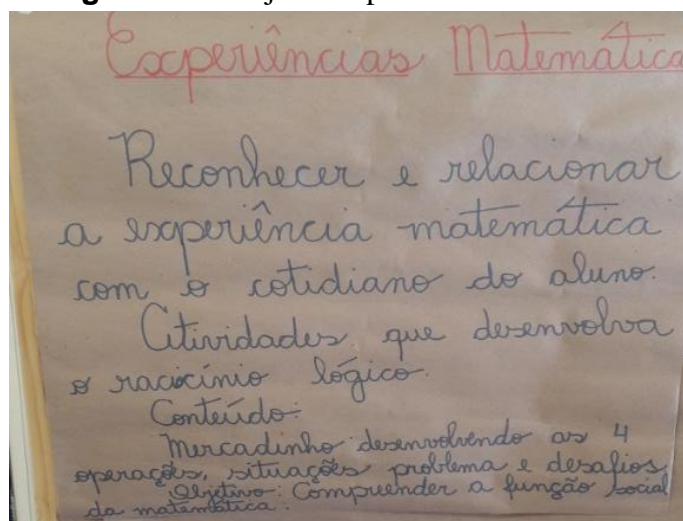 Experiências Matemática
Reconhecer e relacionar
a experiência matemática
com o cotidiano do aluno.
Atividades que desenvolva
o raciocínio lógico.
Conteúdo:
Mercadinho desenvolvendo as 4
operações, situações problema e desafios.
Objetivo: Compreender a função social
da matemática.